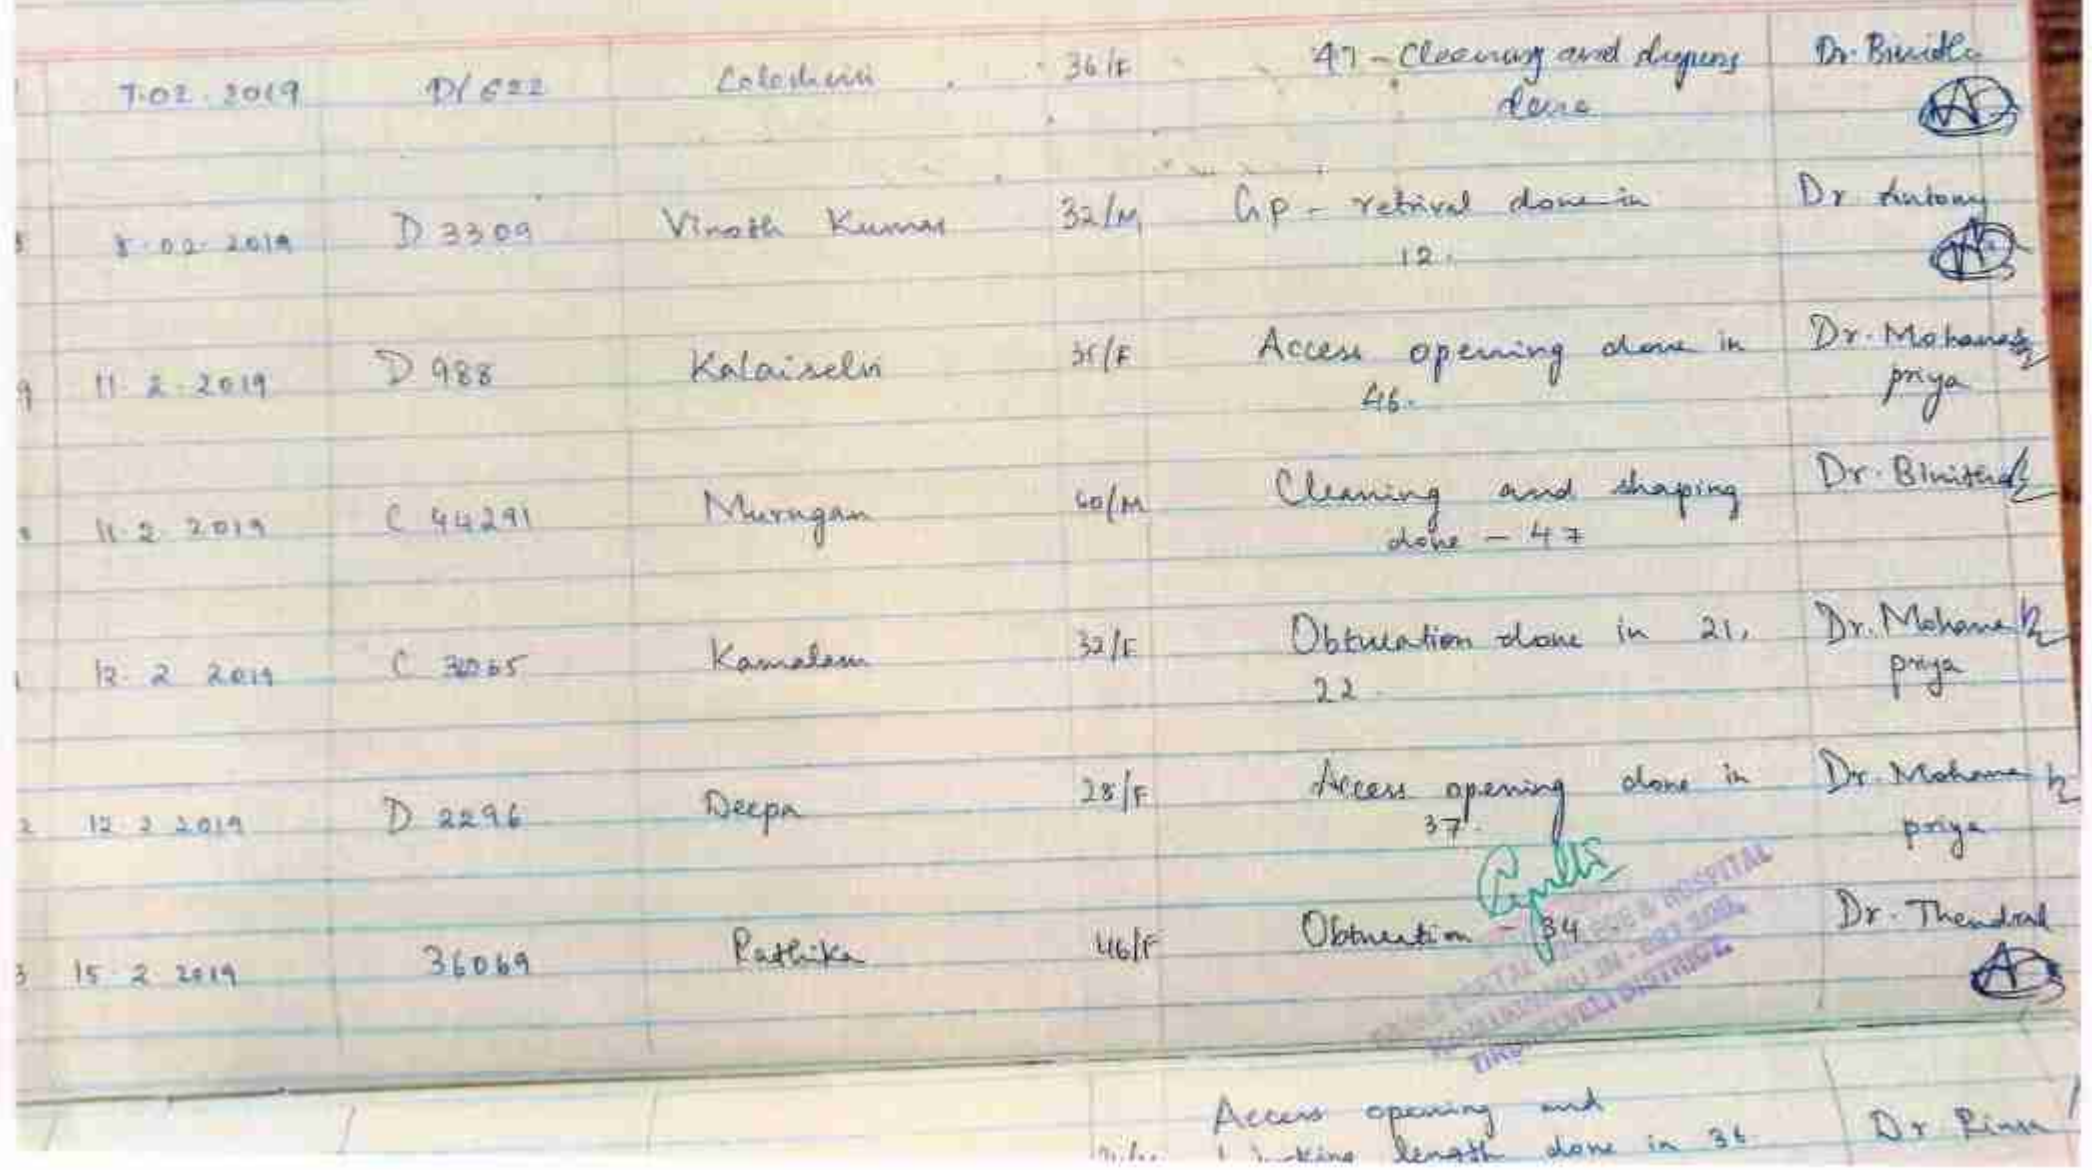 7.02.2019 D/622 36/F 47 - Cleaning and done Dr.
8.02.2019 D 3309 Vinoth Kumar 32/M GP - retrival done in Dr Antony
12.
11.2.2019 D 988 Kalaiselvi /F Access opening done in Dr. Mohana
46. priya
11.2.2019 C 44291 Murugan 60/M Cleaning and shaping Dr. Binitha
done - 47
12.2.2019 C Kamalam 32/F Obturation done in 21, Dr. Mohana
22. priya
12.2.2019 D 2296 Deepa 28/F Access opening done in Dr. Mohana
37. priya
15.2.2019 36069 Rathika 46/F Obturation - 34 Dr. Thendral
DENTAL COLLEGE & HOSPITAL
TIRUNELVELI DISTRICT.
Access opening and
length done in 36 Dr Rinsa